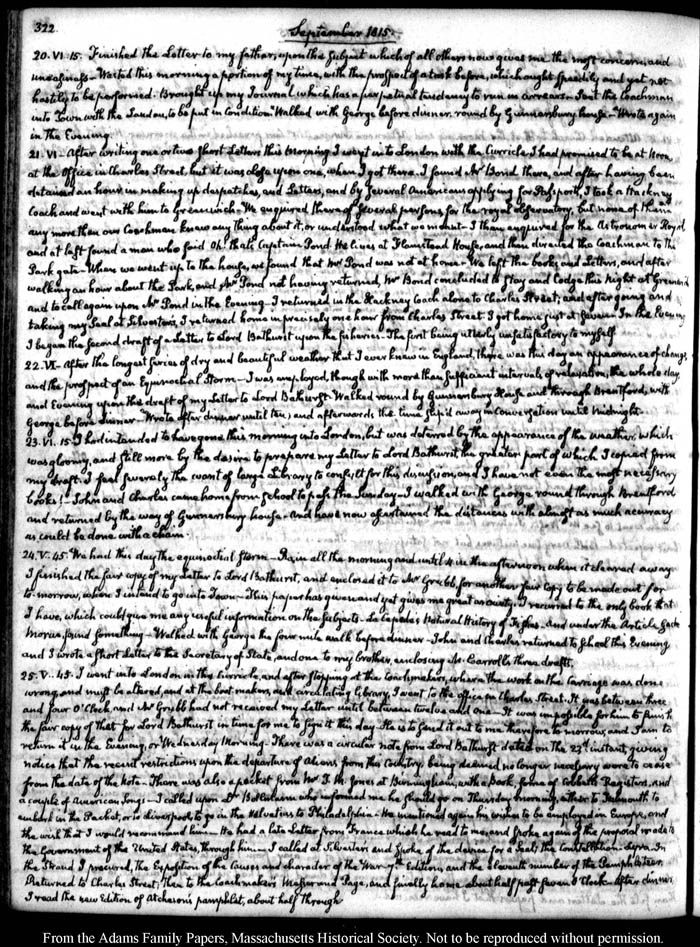 322.
September 1815.
20. VI. 15. Finished the Letter to my father, upon the subject which of all others now gives me the most concern, and
uneasiness — Wasted this morning a portion of my time, with the prospect of a task before, which ought speedily and yet not
hastily to be performed. Brought up my Journal which has a perpetual tendency to run in arrears — Sent the Coachman
into Town with the Landau, to be put in condition. Walked with George before dinner, round by Gunnersbury house — Wrote again
in the Evening
21. VI — After writing one or two short Letters this Morning I went into London with the Curricle. I had promised to be at Noon
at the Office in Charles Street, but it was close upon one, when I got there. I found Mr Bond there, and after having been
detained an hour in making up despatches, and Letters, and by several Americans applying for Passports, I took a Hackney
Coach and went with him to Greenwich. We enquired there of several persons for the royal observatory, but none of them
any more than our Coachman knew any thing about it, or understood what we meant — I then enquired for the Astronomer Royal
and at last found a man who said Oh! that's Captain Pond. He lives at Flamstead House, and then directed the Coachman to the
Park gate — When we went up to the house, we found that Mr Pond was not at home. We left the books, and Letters, and after
walking an hour about the Park, and Mr Pond not having returned, Mr Bond concluded to stay and lodge this Night at Greenwich
and to call again upon Mr Pond in the Evening. I returned in the Hackney Coach alone to Charles Street; and after going and
taking my Seal at Silvester's, I returned home in precisely one hour from Charles Street. I got home just at Seven. In the Evening
I began the second draft of a Letter to Lord Bathurst upon the fisheries. The first being utterly unsatisfactory to myself
22. VI. After the longest series of dry and beautiful weather that I ever knew in England, there was this day an appearance of change
and the prospect of an Equinoctial Storm — I was employed, though with more than sufficient intervals of relaxation, the whole day
and Evening upon the draft of my Letter to Lord Bathurst. Walked round by Gunnersbury House and through Brentford, with
George before dinner — Wrote after dinner until ten; and afterwards the time slip'd away in Conversation until Midnight
23. VI. 15. I had intended to have gone this morning into London, but was deterred by the appearance of the weather, which
was gloomy, and still more by the desire to prepare my Letter to Lord Bathurst the greater part of which I copied from
my draft. I feel severely the want of large Library to consult for this discussion, and I have not even the most necessary
books! — John and Charles came home from School to pass the Sunday — I walked with George round through Brentford
and returned by the way of Gunnersbury house. And have now ascertained the distances with almost as much accuracy
as could be done with a chain
24. V. 45. We had this day the equinoctial Storm — Rain all the morning and until 4 in the afternoon when it cleared away
I finished the fair copy of my Letter to Lord Bathurst, and enclosed it to Mr Grubb, for another fair Copy to be made out for
to-morrow, when I intend to go into Town — This paper has given and yet gives me great anxiety. I recurred to the only book that
I have, which could give me any useful information on the subjects. La Cepede's Natural History of Fishes. And under the Article Gade
Morue, found something — Walked with George the four mile walk before dinner. John and Charles returned to School this Evening
and I wrote a short Letter to the Secretary of State, and one to my brother, enclosing Mr Carroll's three drafts.
25. V. 45. I went into London in the Curricle, and after stopping at the Coachmaker's, where the work on the Carriage was done
wrong, and must be altered, and at the boot makers, and circulating library, I went to the office in Charles Street. It was between three
and four O'Clock, and Mr Grubb had not received my Letter until between twelve and one — It was impossible for him to finish
the fair copy of that for Lord Bathurst in time for me to sign it this day. He is to send it out to me therefore to-morrow, and I am to
return it in the Evening, or Wednesday Morning. There was a circular note from Lord Bathurst dated on the 23d instant, giving
notice that the recent restrictions upon the departure of Aliens from this Country, being deemed no longer necessary were to cease
from the date of the Note. There was also a packet from Mr T. W. Jones at Birmingham, with a Book, some of Cobbett's Registers, and
a couple of American Songs — I called upon Dr Bollmann who informed me he should go on Thursday morning, either to Falmouth to
embark in the Packet, or to Liverpool, to go in the Helvetius to Philadelphia — He mentioned again his wishes to be employed in Europe, and
the wish that I would recommend him — He had a late Letter from France which he read to me, and spoke again of the proposal made to
the Government of the United States, through him — I called at Silvester's and spoke of the device for a Seal; the Constellation Lyra. In
the Strand I procured, the Exposition of the Causes and character of the War 7th Edition, and the eleventh number of the Pamphleteer.
Returned to Charles Street; Then to the Coachmaker's Messer and Page, and finally home about half past Seven O'Clock. After dinner
I read the new Edition of Atcheson's pamphlet, about half through
From the Adams Family Papers, Massachusetts Historical Society. Not to be reproduced without permission.